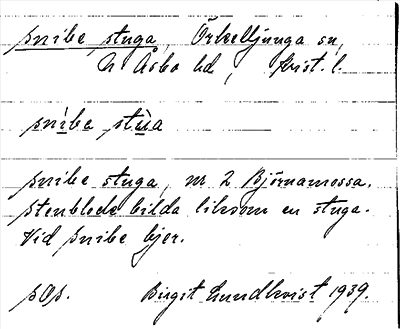 snibe stuga, Örkelljunga sn,
N Åsbo hd, Krist. l.
snìbe stùa
snibe stuga, nr 2 Björnamossa.
stenblock bilda liksom en stuga.
Vid snibe kjer.
sOs. Birgit Lundkvist 1939.